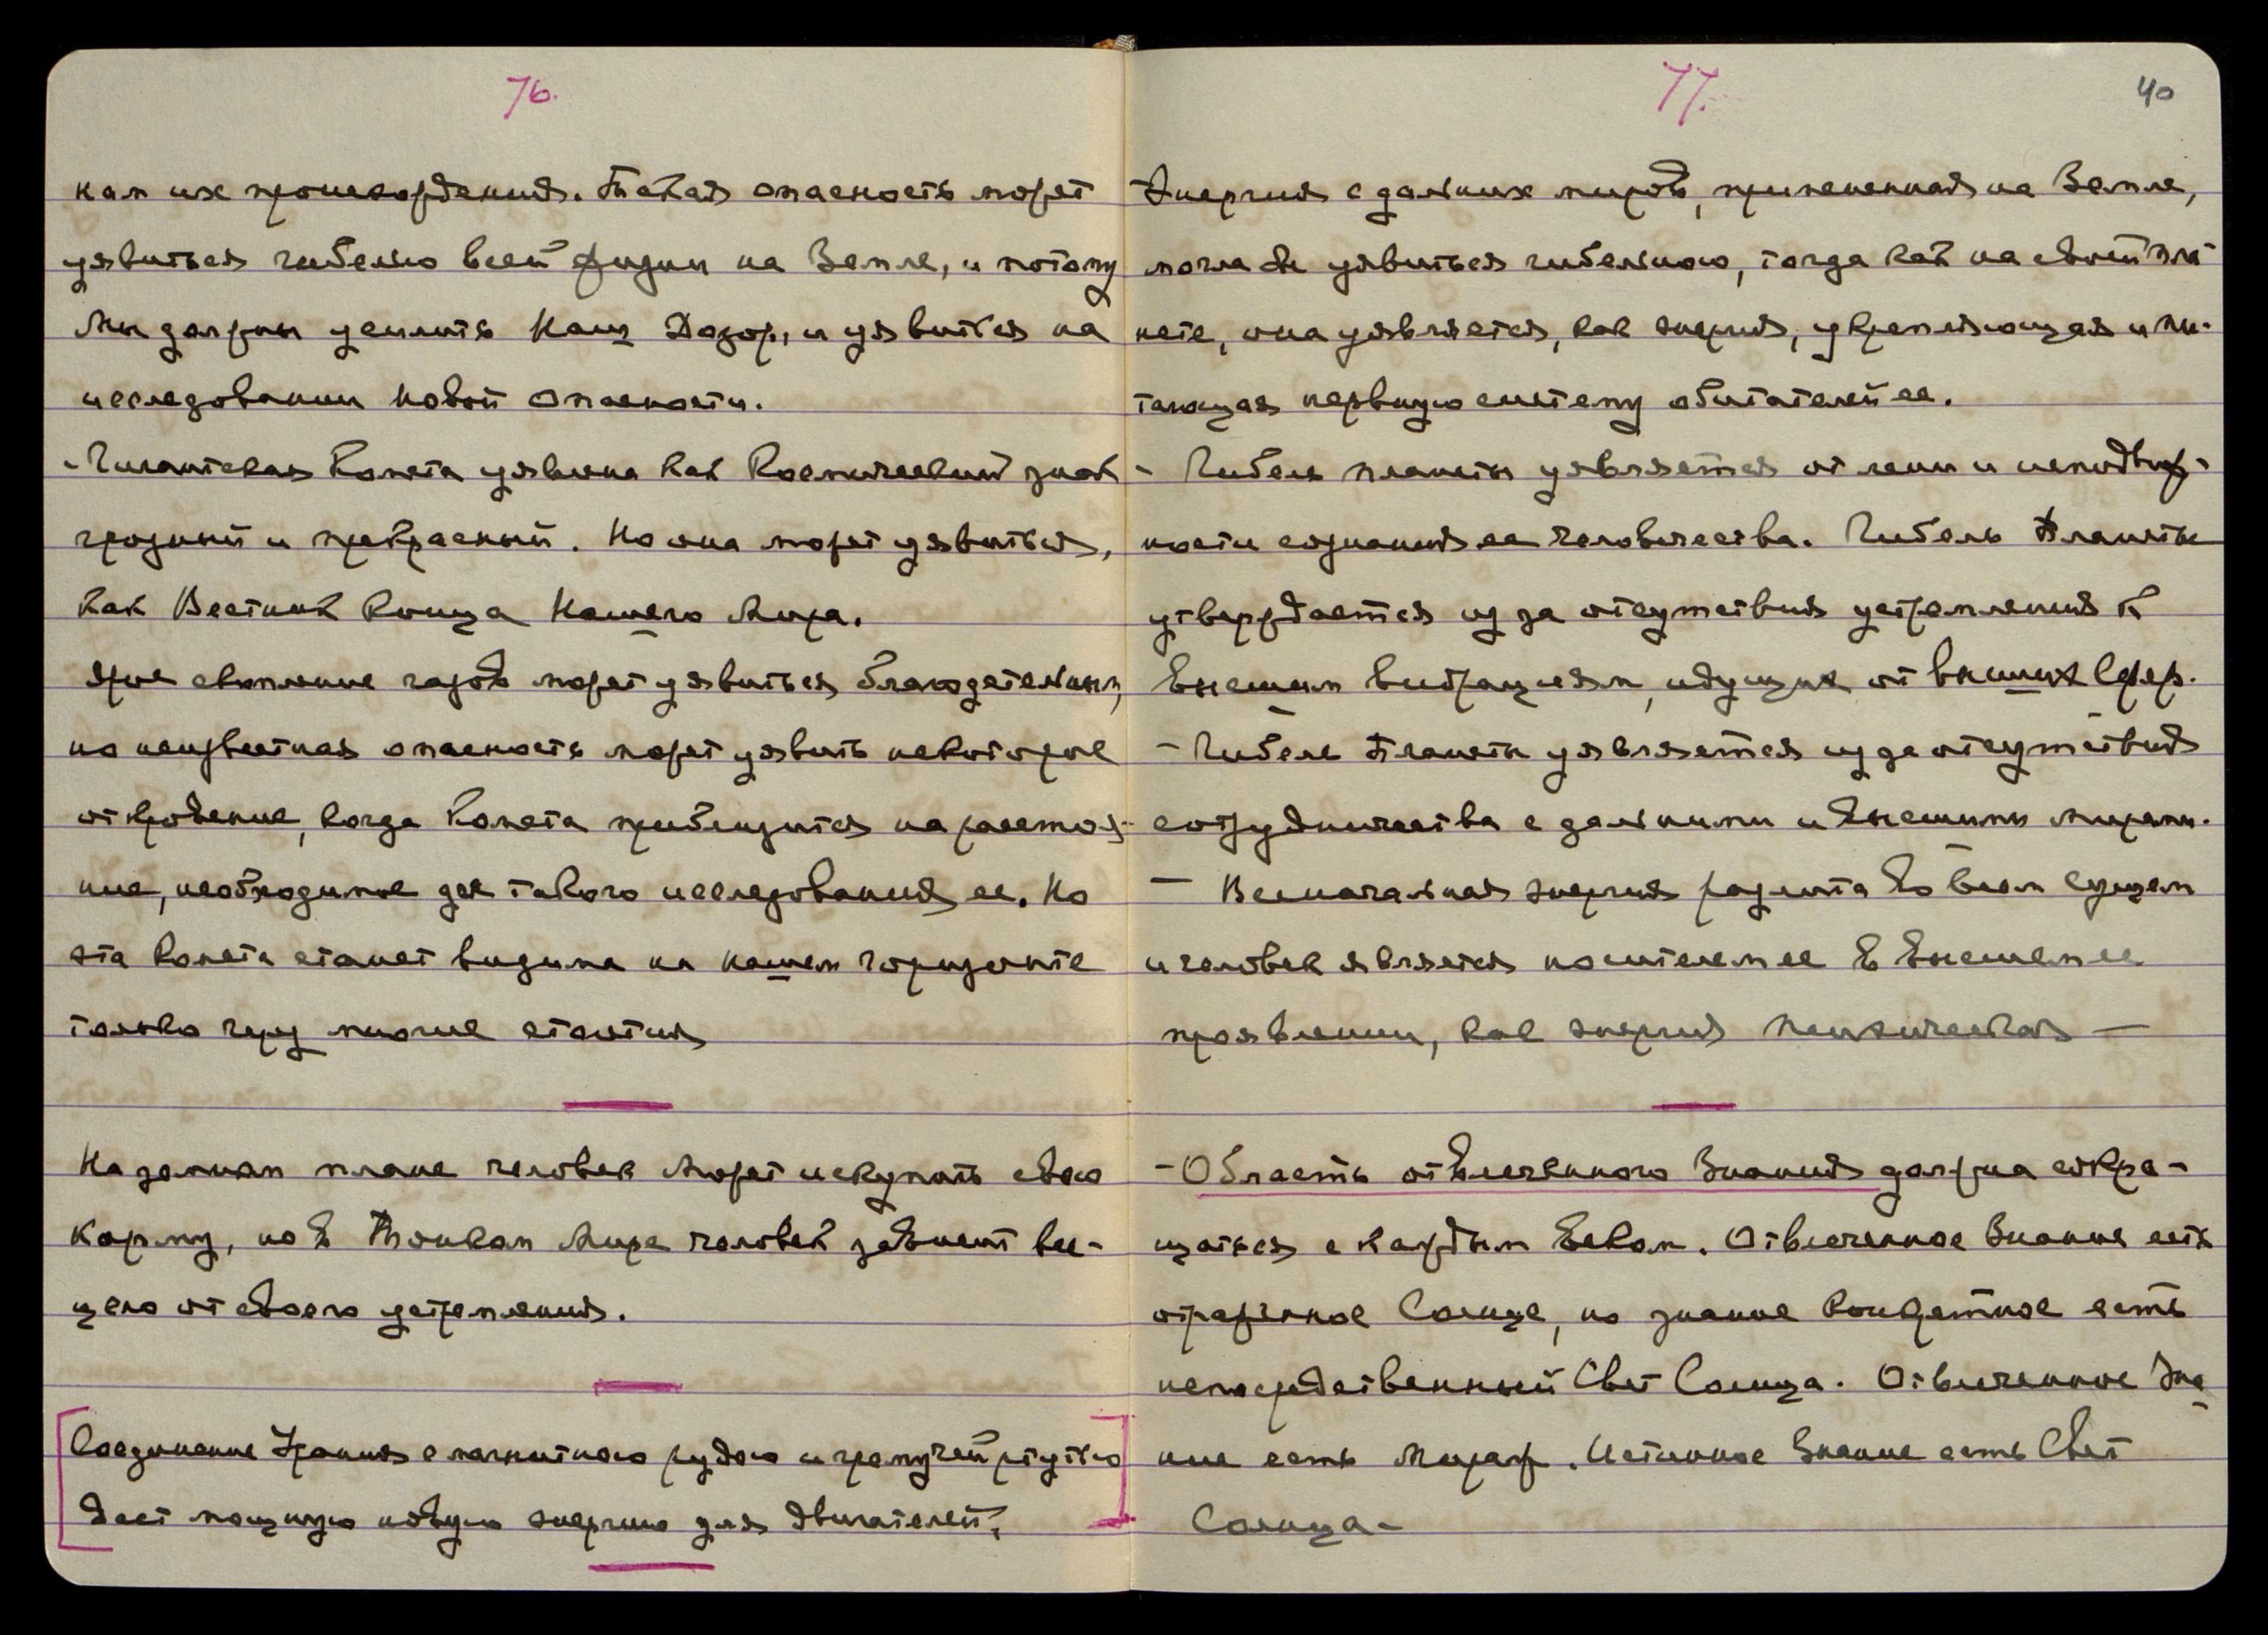 76.
кам их происхождения. Такая опасность может
уявиться гибелью всей жизни на Земле, и потому
Мы должны усилить Наш Дозор, и уявиться на
исследовании новой опасности.
- Гигантская Комета уявлена как Космический знак
грозный и прекрасный. Но она может уявиться,
как Вестник Конца Нашего Мира.
Ярое скопление газов может уявиться благодетельным,
но неизвестная опасность может уявить некоторое
открытие, когда Комета приблизится на расстоя-
ние, необходимое для такого исследования ее. Но
эта Комета станет видима на нашем горизонте
только через многие столетия
На земном плане человек может искупать свою
карму, но в Тонком Мире человек зависит все-
цело от своего устремления.
[Соединение Урания с магнитною рудою и гремучей ртутью
даст мощную новую энергию для двигателей.]
77.
40
Энергия с дальних миров, примененная на Земле,
могла бы уявиться гибельною, тогда как на своей пла-
нете, она уявляется, как энергия, укрепляющая и пи-
тающая нервную систему обитателей ее.
- Гибель планеты уявляется от лени и неподвиж-
ности сознания ее человечества. Гибель Планеты
утверждается из за отсутствия устремления к
высшим вибрациям, идущих от высших Сфер.
- Гибель Планеты уявляется из за отсутствия
сотрудничества с дальними и Высшими Мирами.
- Всеначальная энергия разлита во всем Сущем
и человек является носителем ее в высшем ее
проявлении, как энергия психическая —
- Область отвлеченного Знания должна сокра-
щаться с каждым Веком. Отвлеченное Знание есть
отраженное Солнце, но знание конкретное есть
непосредственный Свет Солнца. Отвлеченное Зна-
ние есть Мираж. Истинное Знание есть Свет
Солнца -